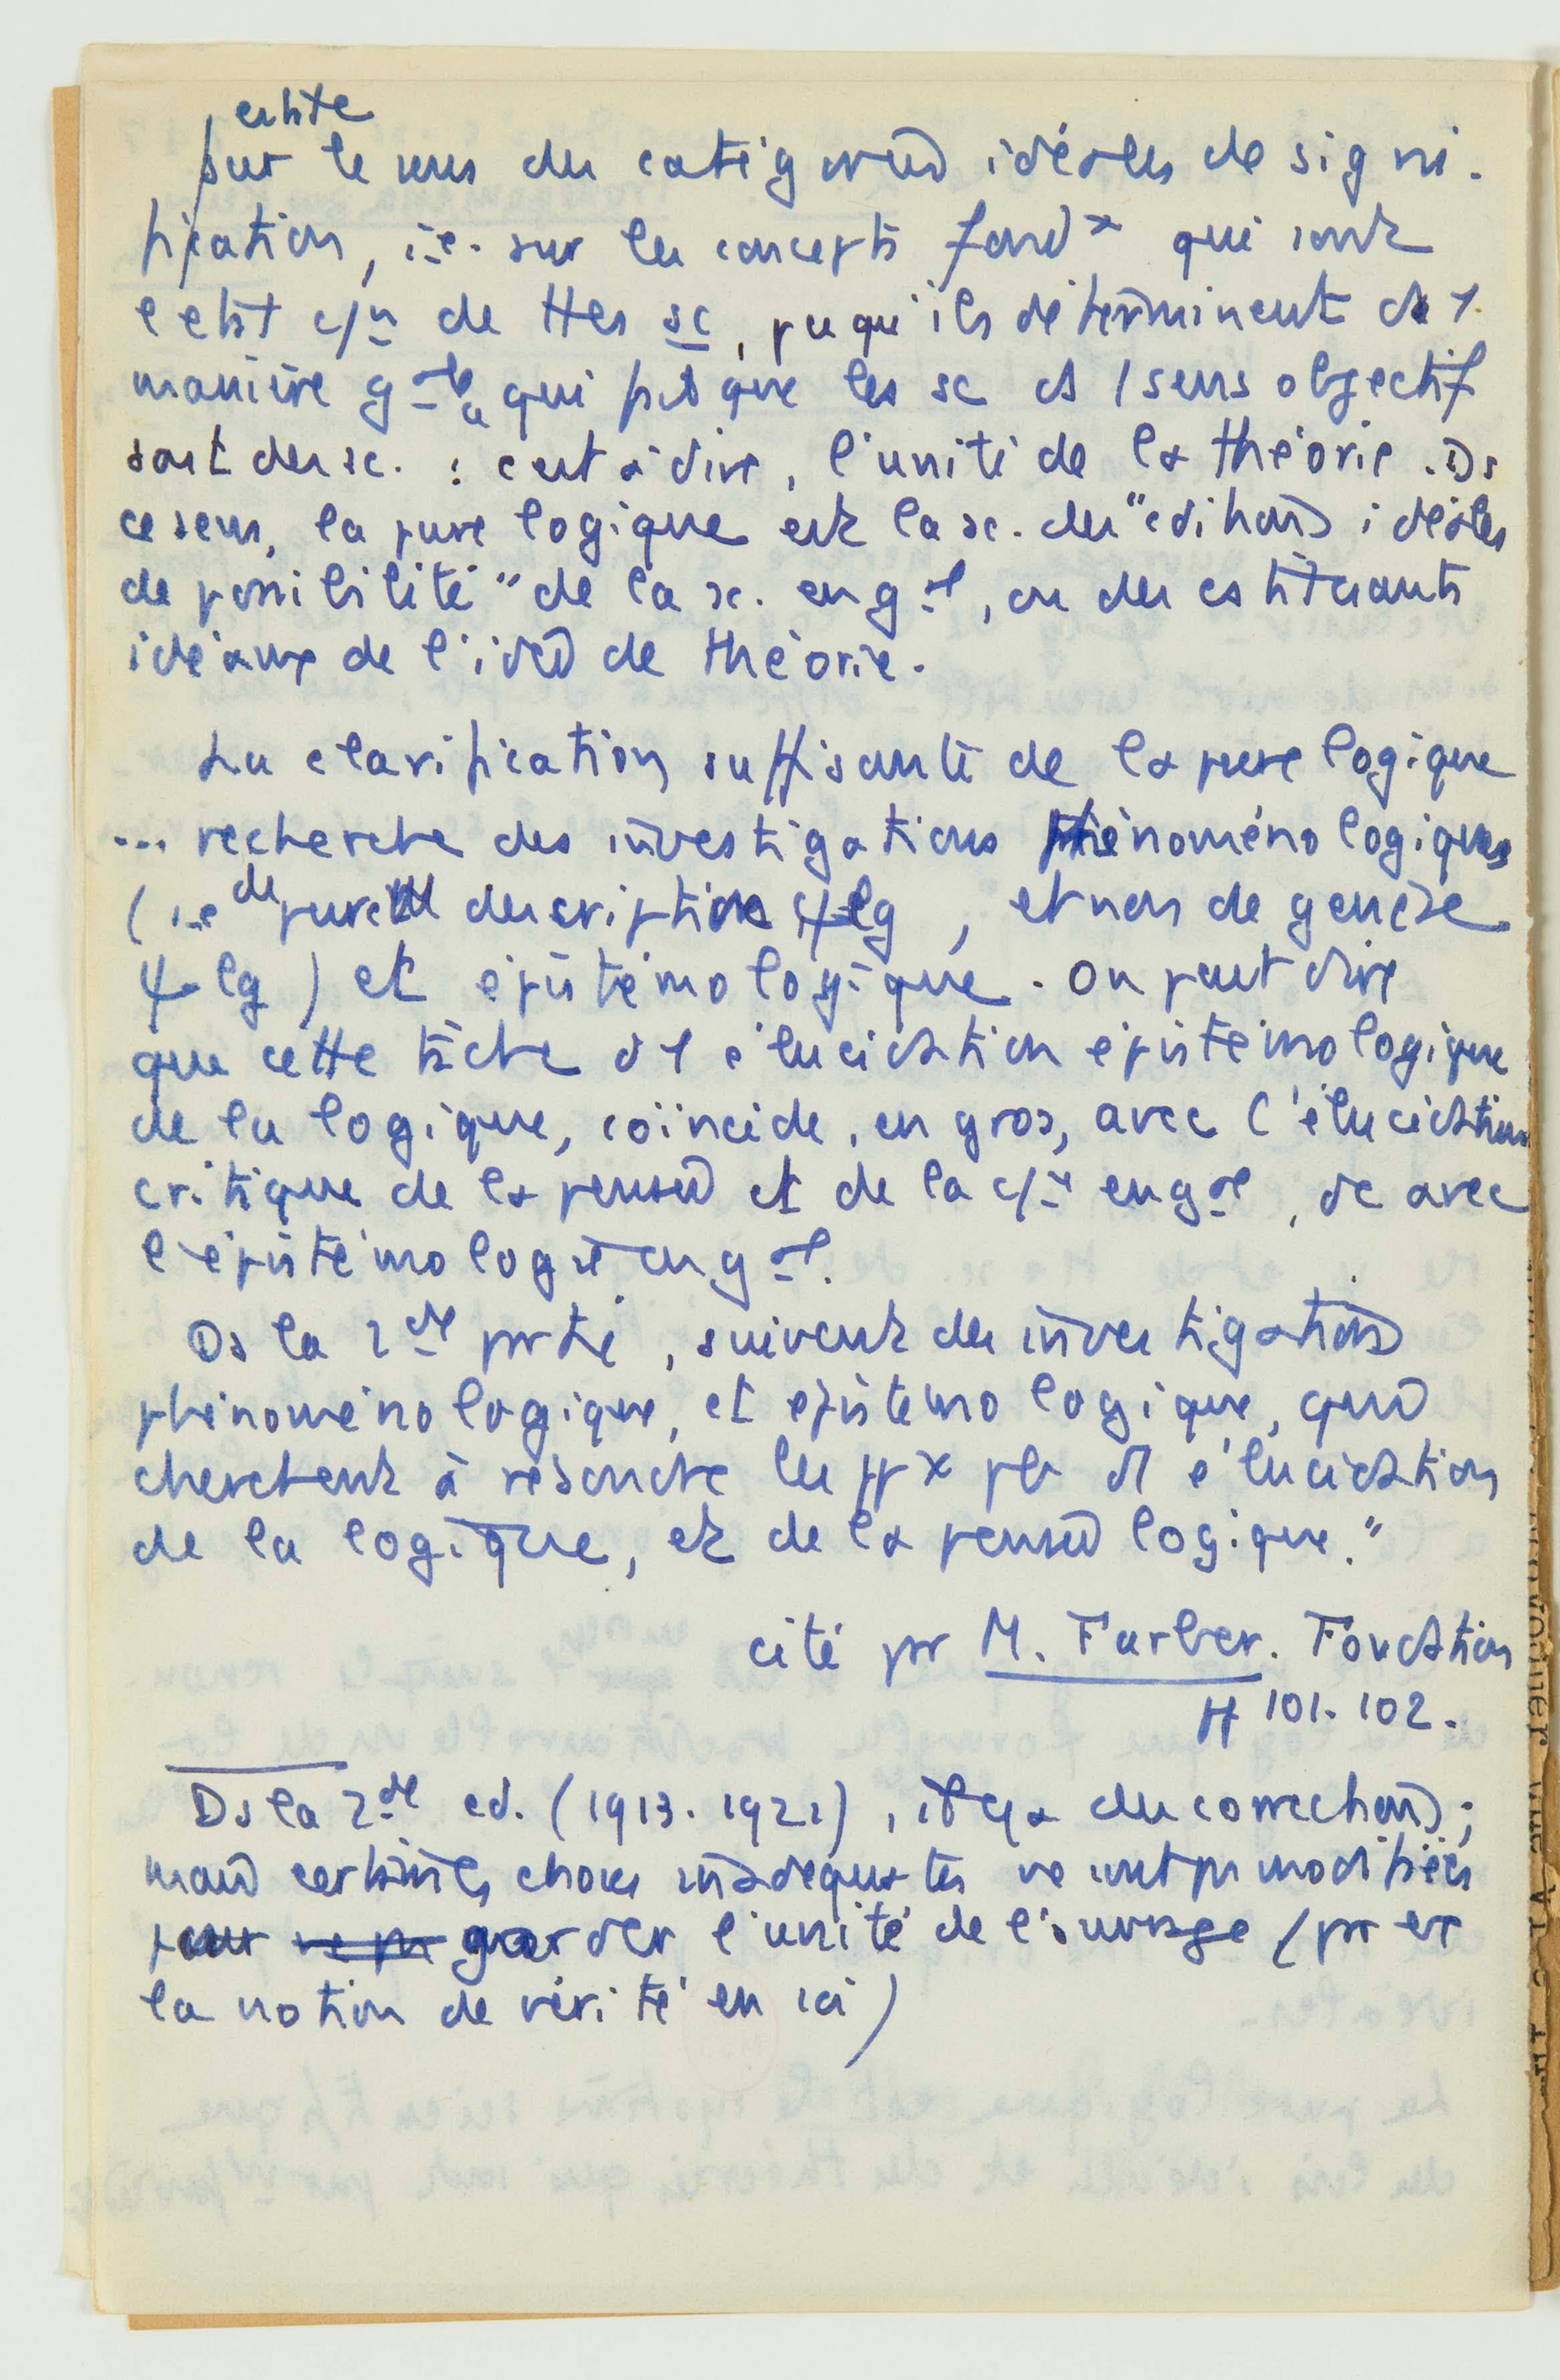 existe
sur le sens des catégories idéales de signi-
fication, i.e. sur les concepts fondx qui sont
l'elst c/n de ttes sc, pcqu'ils déterminent ds 1
manière gale qui fait que les sc ds 1 sens objectif
sont des sc. : c'est à dire, l'unité de la théorie. Ds
ce sens, la pure logique est la sc. des "cditions idéales
de possibilité" de la sc. en gal, ou des cstituants
idéaux de l'idée de théorie.
La clarification suffisante de la pure logique
... recherche des investigations phénoménologiques
(i.e de pure description ψlg, et non de genèse
ψlg) et épistémologique. On peut dire
que cette tâche d'1 élucidation épistémologique
de la logique, coïncide, en gros, avec l'élucidation
critique de la pensée et de la c/ce en gal, dc avec
l'épistémologie en gal.
Ds la 2de partie, suivent des investigations
phénoménologique, et épistémologique, qui
cherchent à résoudre les ppx pb d'1 élucidation
de la logique, et de la pensée logique."
cité pr M. Farber. Foundation
101-102.
Ds la 2de ed. (1913-1921), il y a des corrections;
mais certaines choses inadéquates ne sont ps modifiées
pour ne ps garder l'unité de l'ouvrage (pr ex
la notion de vérité en ici)